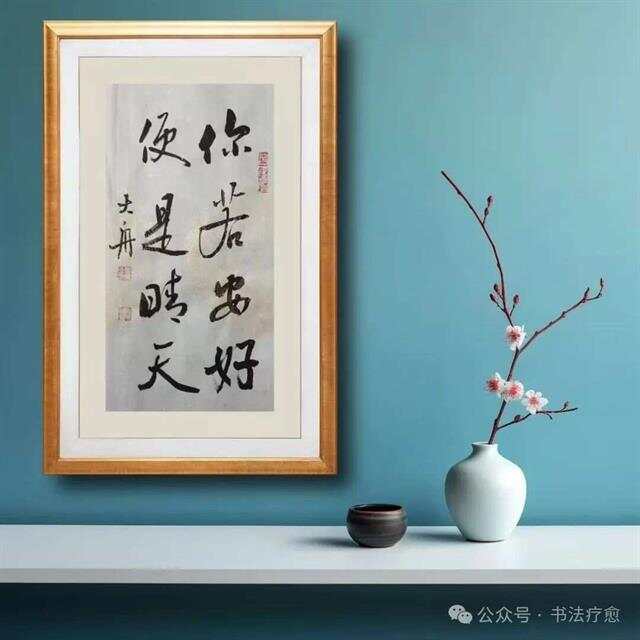 你若安好
便是晴天
大舟
公众号·书法疗愈